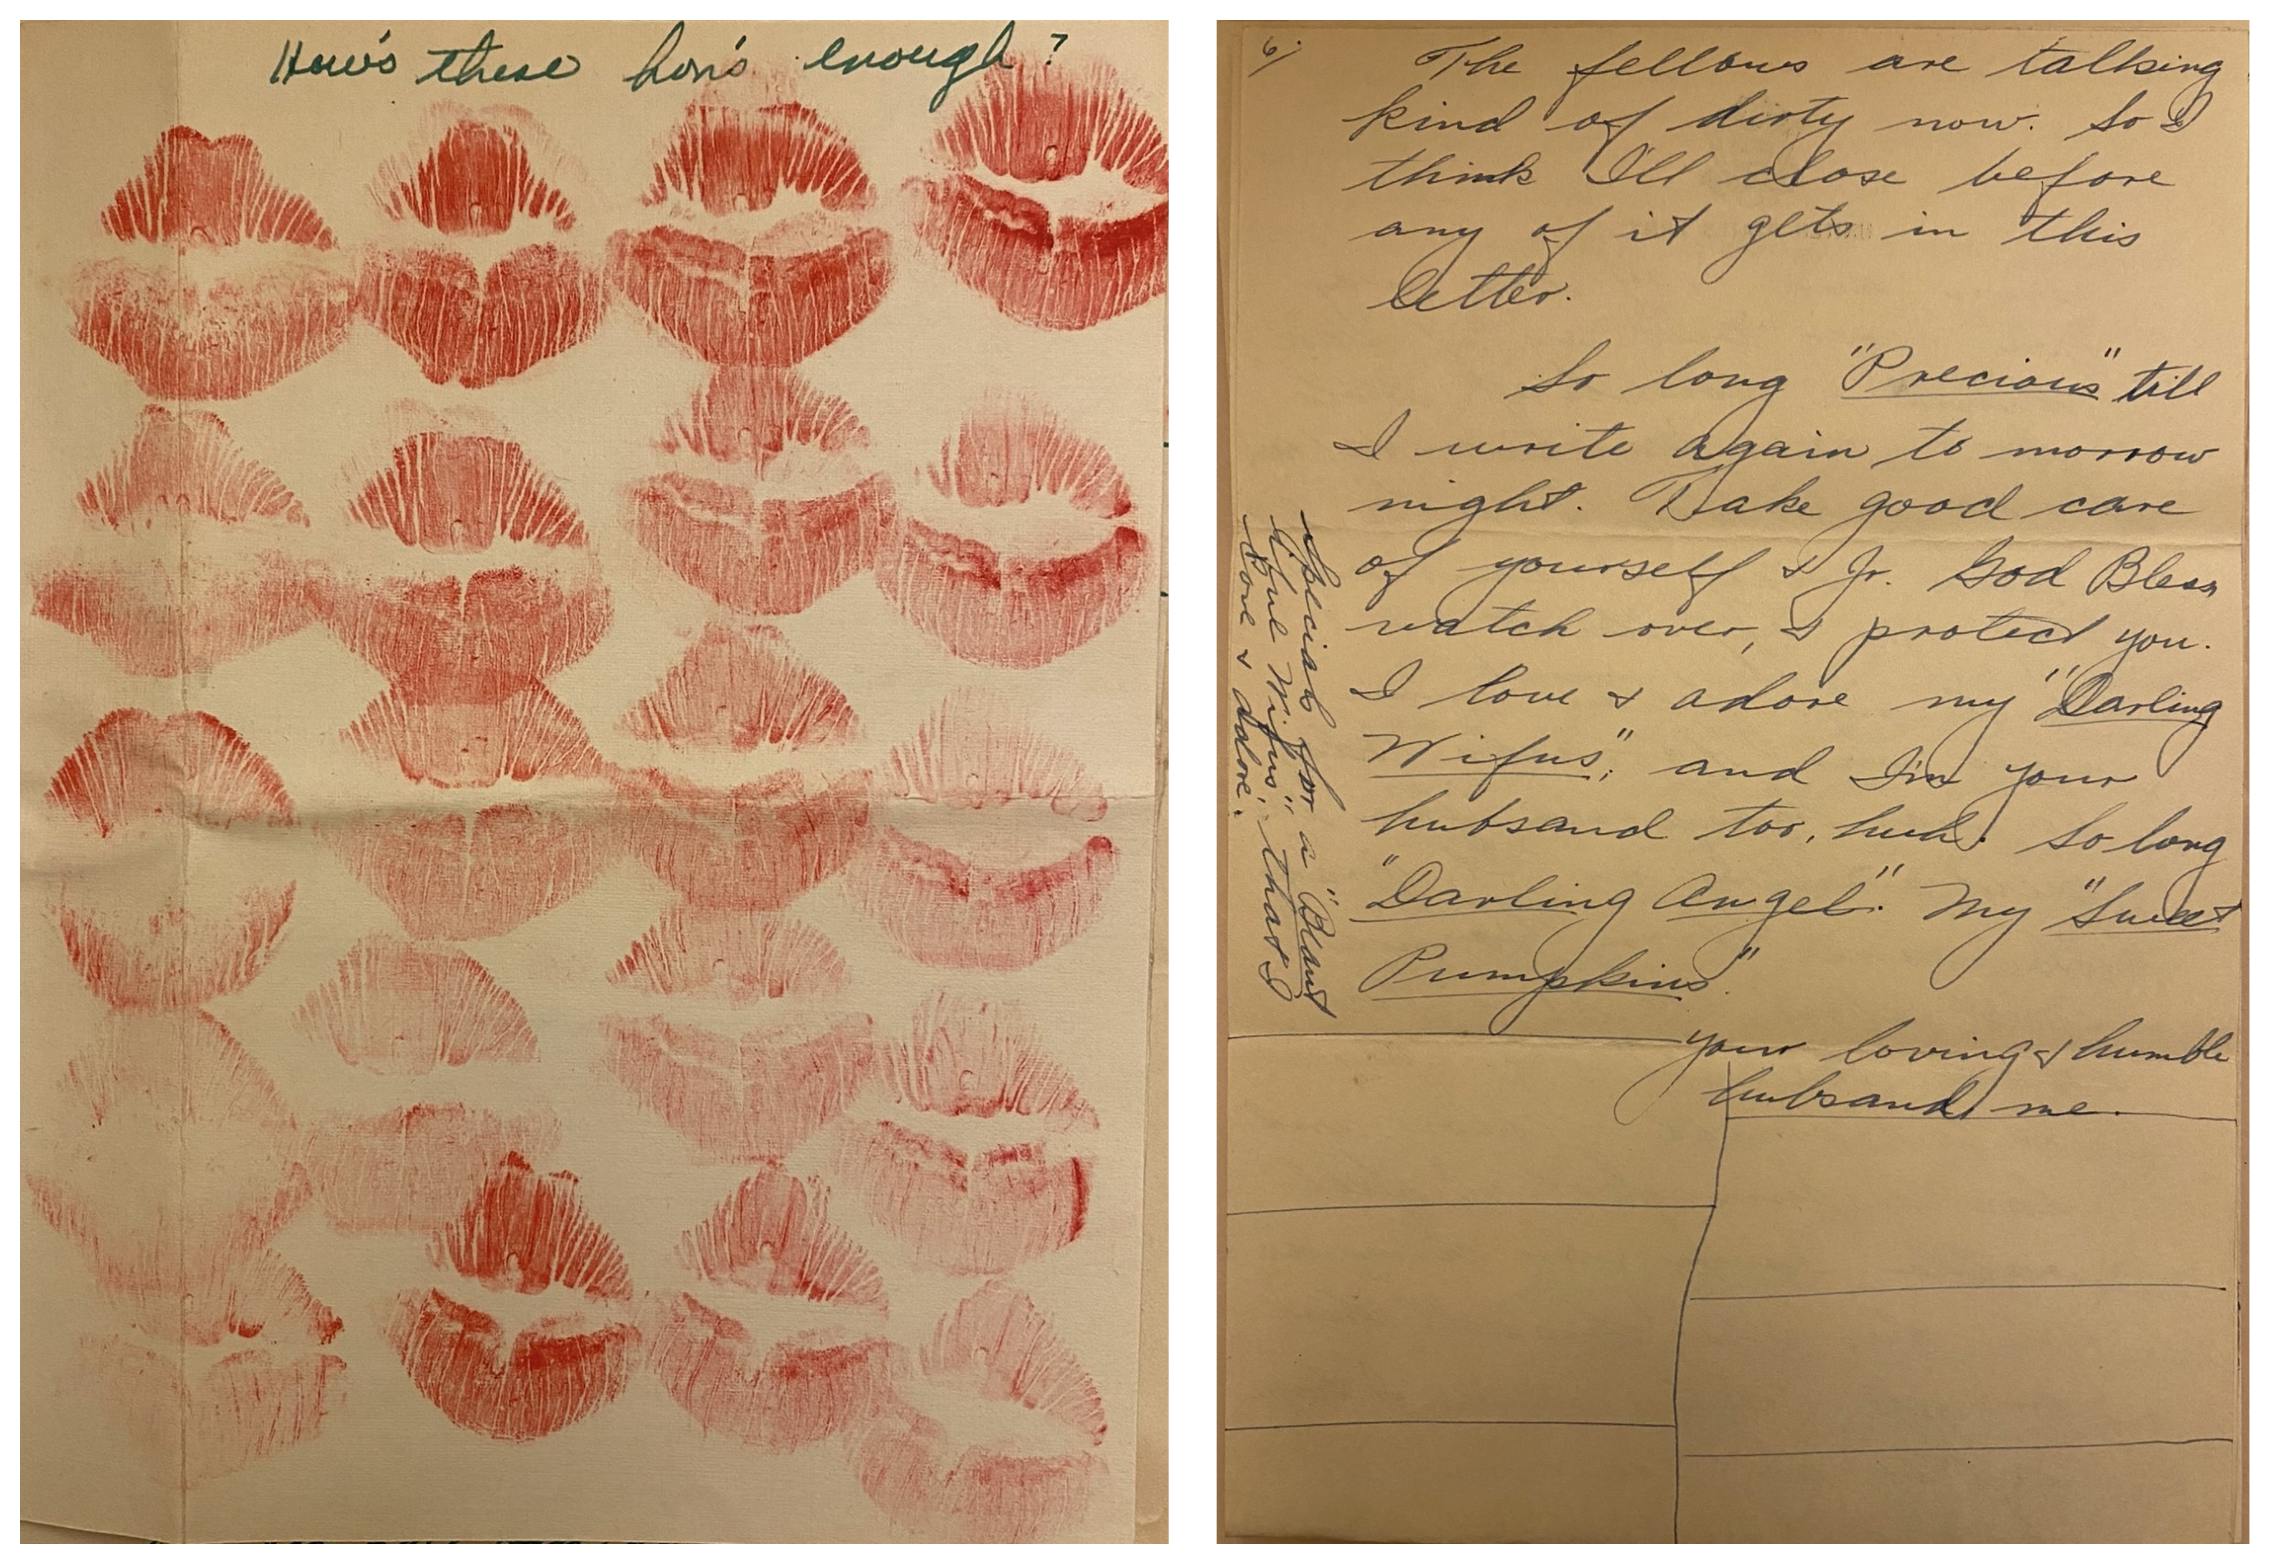 How's these hon's enough?
6/
The fellows are talking
kind of dirty now. So I
think I'll close before
any of it gets in this
letter.
So long "Precious" till
I write again to morrow
night. Take good care
of yourself & Jr. God Bless
watch over, & protect you.
I love & adore my "Darling
Wifus"; and I'm your
hubsand too, huh. So long
"Darling Angel". My "Sweet
Pumpkins".
your loving & humble
hubsand me.
Special for a
Wifus", that I
love & adore.